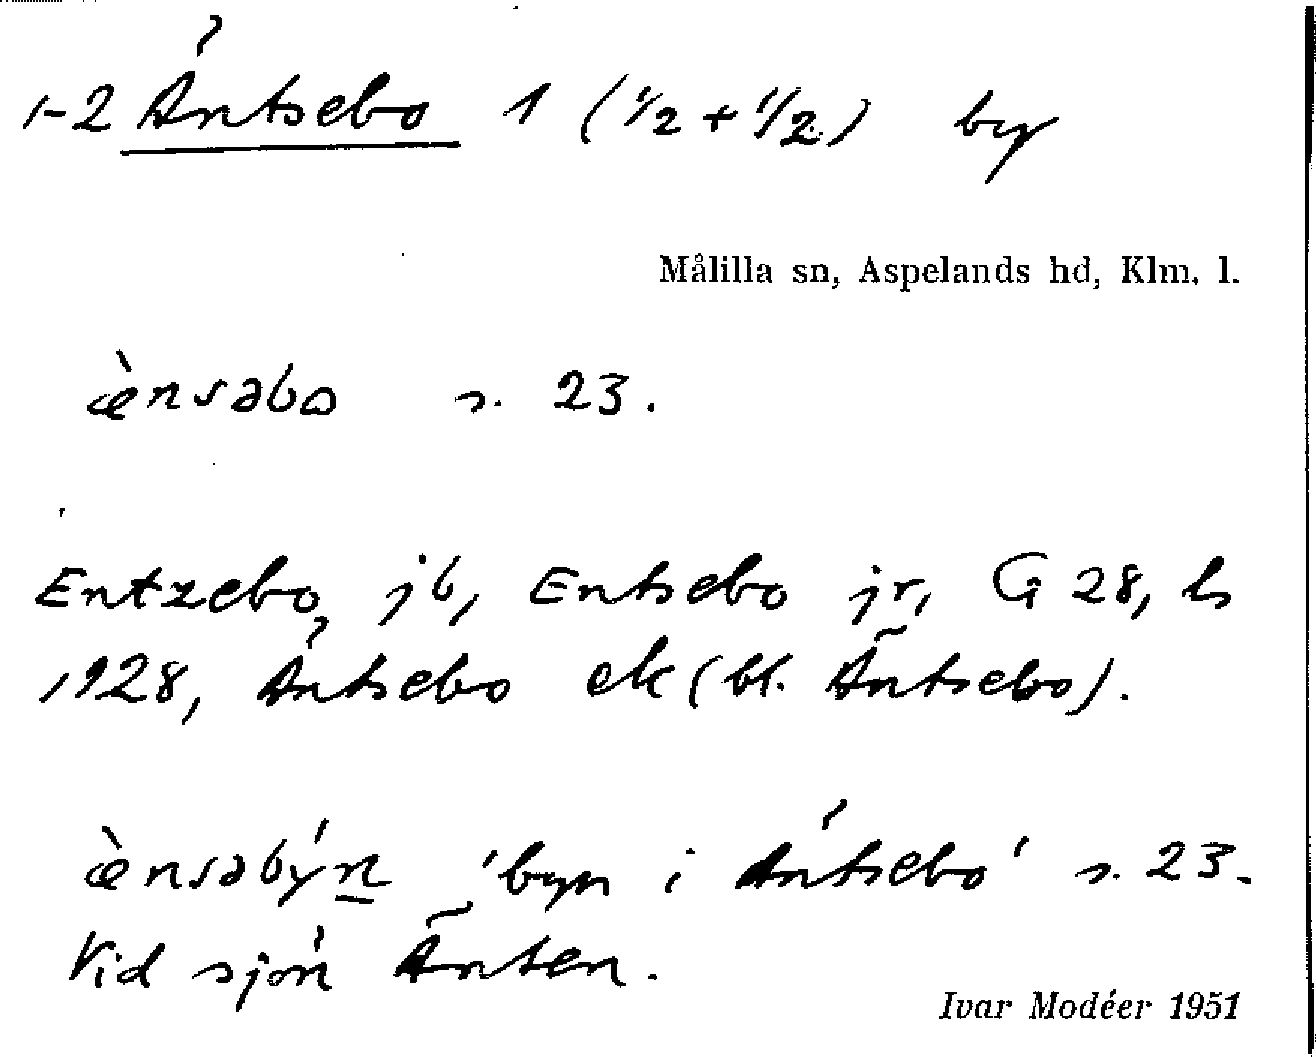 1-2 Äntsebo 1 (1/2 + 1/2) by
Målilla sn, Aspelands hd, Klm. l.
ænsəbo s. 23.
Entzebo jb, Entsebo jr, G 28, ls
1928, Äntsebo ek (bl. Äntsebo).
ænsəbýn 'byn i Äntsebo' s. 23.
Vid sjön Änten.
Ivar Modéer 1951